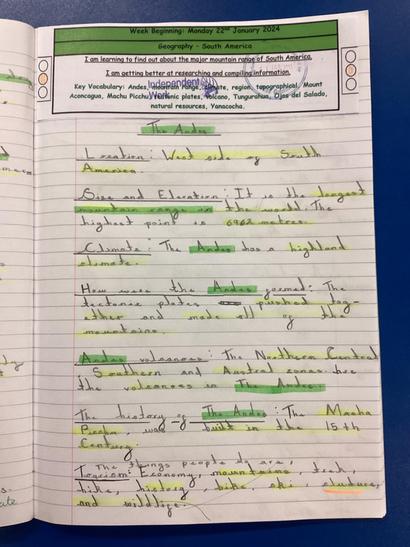 Week Beginning: Monday 22nd January 2024
Geography - South America
I am learning to find out about the major mountain range of South America.
I am getting better at researching and compiling information.
Independent
Work
Key Vocabulary: Andes, mountain range, climate, region, topographical, Mount
Aconcagua, Machu Picchu, tectonic plates, volcano, Tungurahua, Ojos del Salado,
natural resources, Yanacocha.
The Andes
Location: West side of South
America.
Size and Elevation: It is the longest
mountain range in the world. The
highest point is 6962 metres.
Climate: The Andes has a highland
climate.
How were the Andes formed: The
tectonic plates pushed tog-
ether and made all of the
mountains.
Andes volcanoes: The Northern Central
Southern and Austral zones are
the volcanoes in The Andes.
The history of The Andes: The Macha
Picchu, was built in the 15th
Century.
The things people do are,
Tourism: Economy, mountains, trek,
hike, history, bike, ski,
and wildlife.